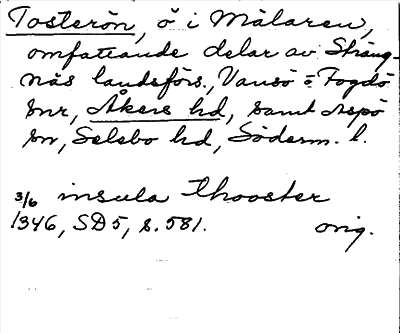 Tosterön, ö i Mälaren,
omfattande delar av Sträng-
näs landsförs., Vansö o Fogdö
snr, Åkers hd, samt Aspö
sn, Selebo hd, Söderm. l.
3/6 insula Thooster
1346, SD5, s. 581. orig.